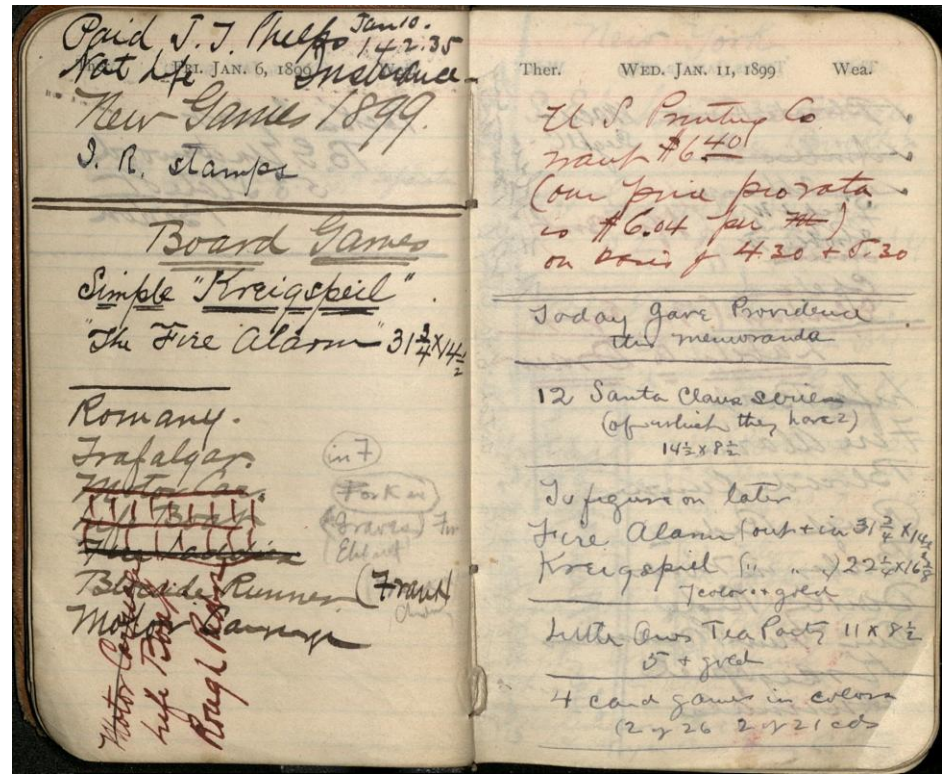 Paid J. J. Phelps Jan 10.
142.35
Nat Life Insurance
FRI. JAN. 6, 1899
New Games 1899.
I. R. stamps
Board Games
Simple "Kreigspeil".
"The Fire Alarm" 31 3/4 x 14 1/2
Romany.
Trafalgar.
Motor Car
Life Boat
Blockade Runner (Frank
Motor Carriage
in 7
For K in
(Graves) For
Motor Carriage
Life Boat
Rough Riders
Ther. WED. JAN. 11, 1899 Wea.
U S Printing Co
want $6.40
(our price pro rata
is $6.04 per M)
on basis of 4 30 + 5.30
Today gave Providence
this memoranda
12 Santa Claus series
(of which they have 2)
14 1/2 x 8 1/2
To figure on later
Fire Alarm (out + in 31 3/4 x 14 1/2
Kreigspiel (" " ") 22 1/4 x 16
7 colors + gold
Little Ones Tea Party 11 x 8 1/2
5 + gold
4 card games in colors
(2 of 26 2 of 21 cds